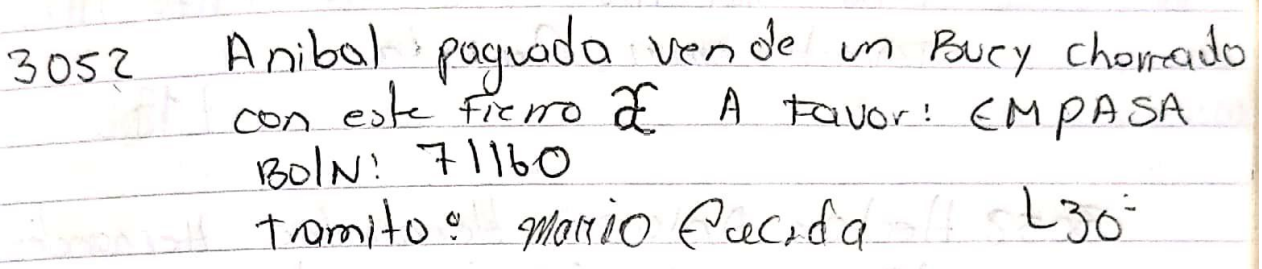 3052 Anibal paguada vende un Bucy chorreado
con este Fierro A Favor: EMPASA
BolN: 71160
tramito: Mario L30-